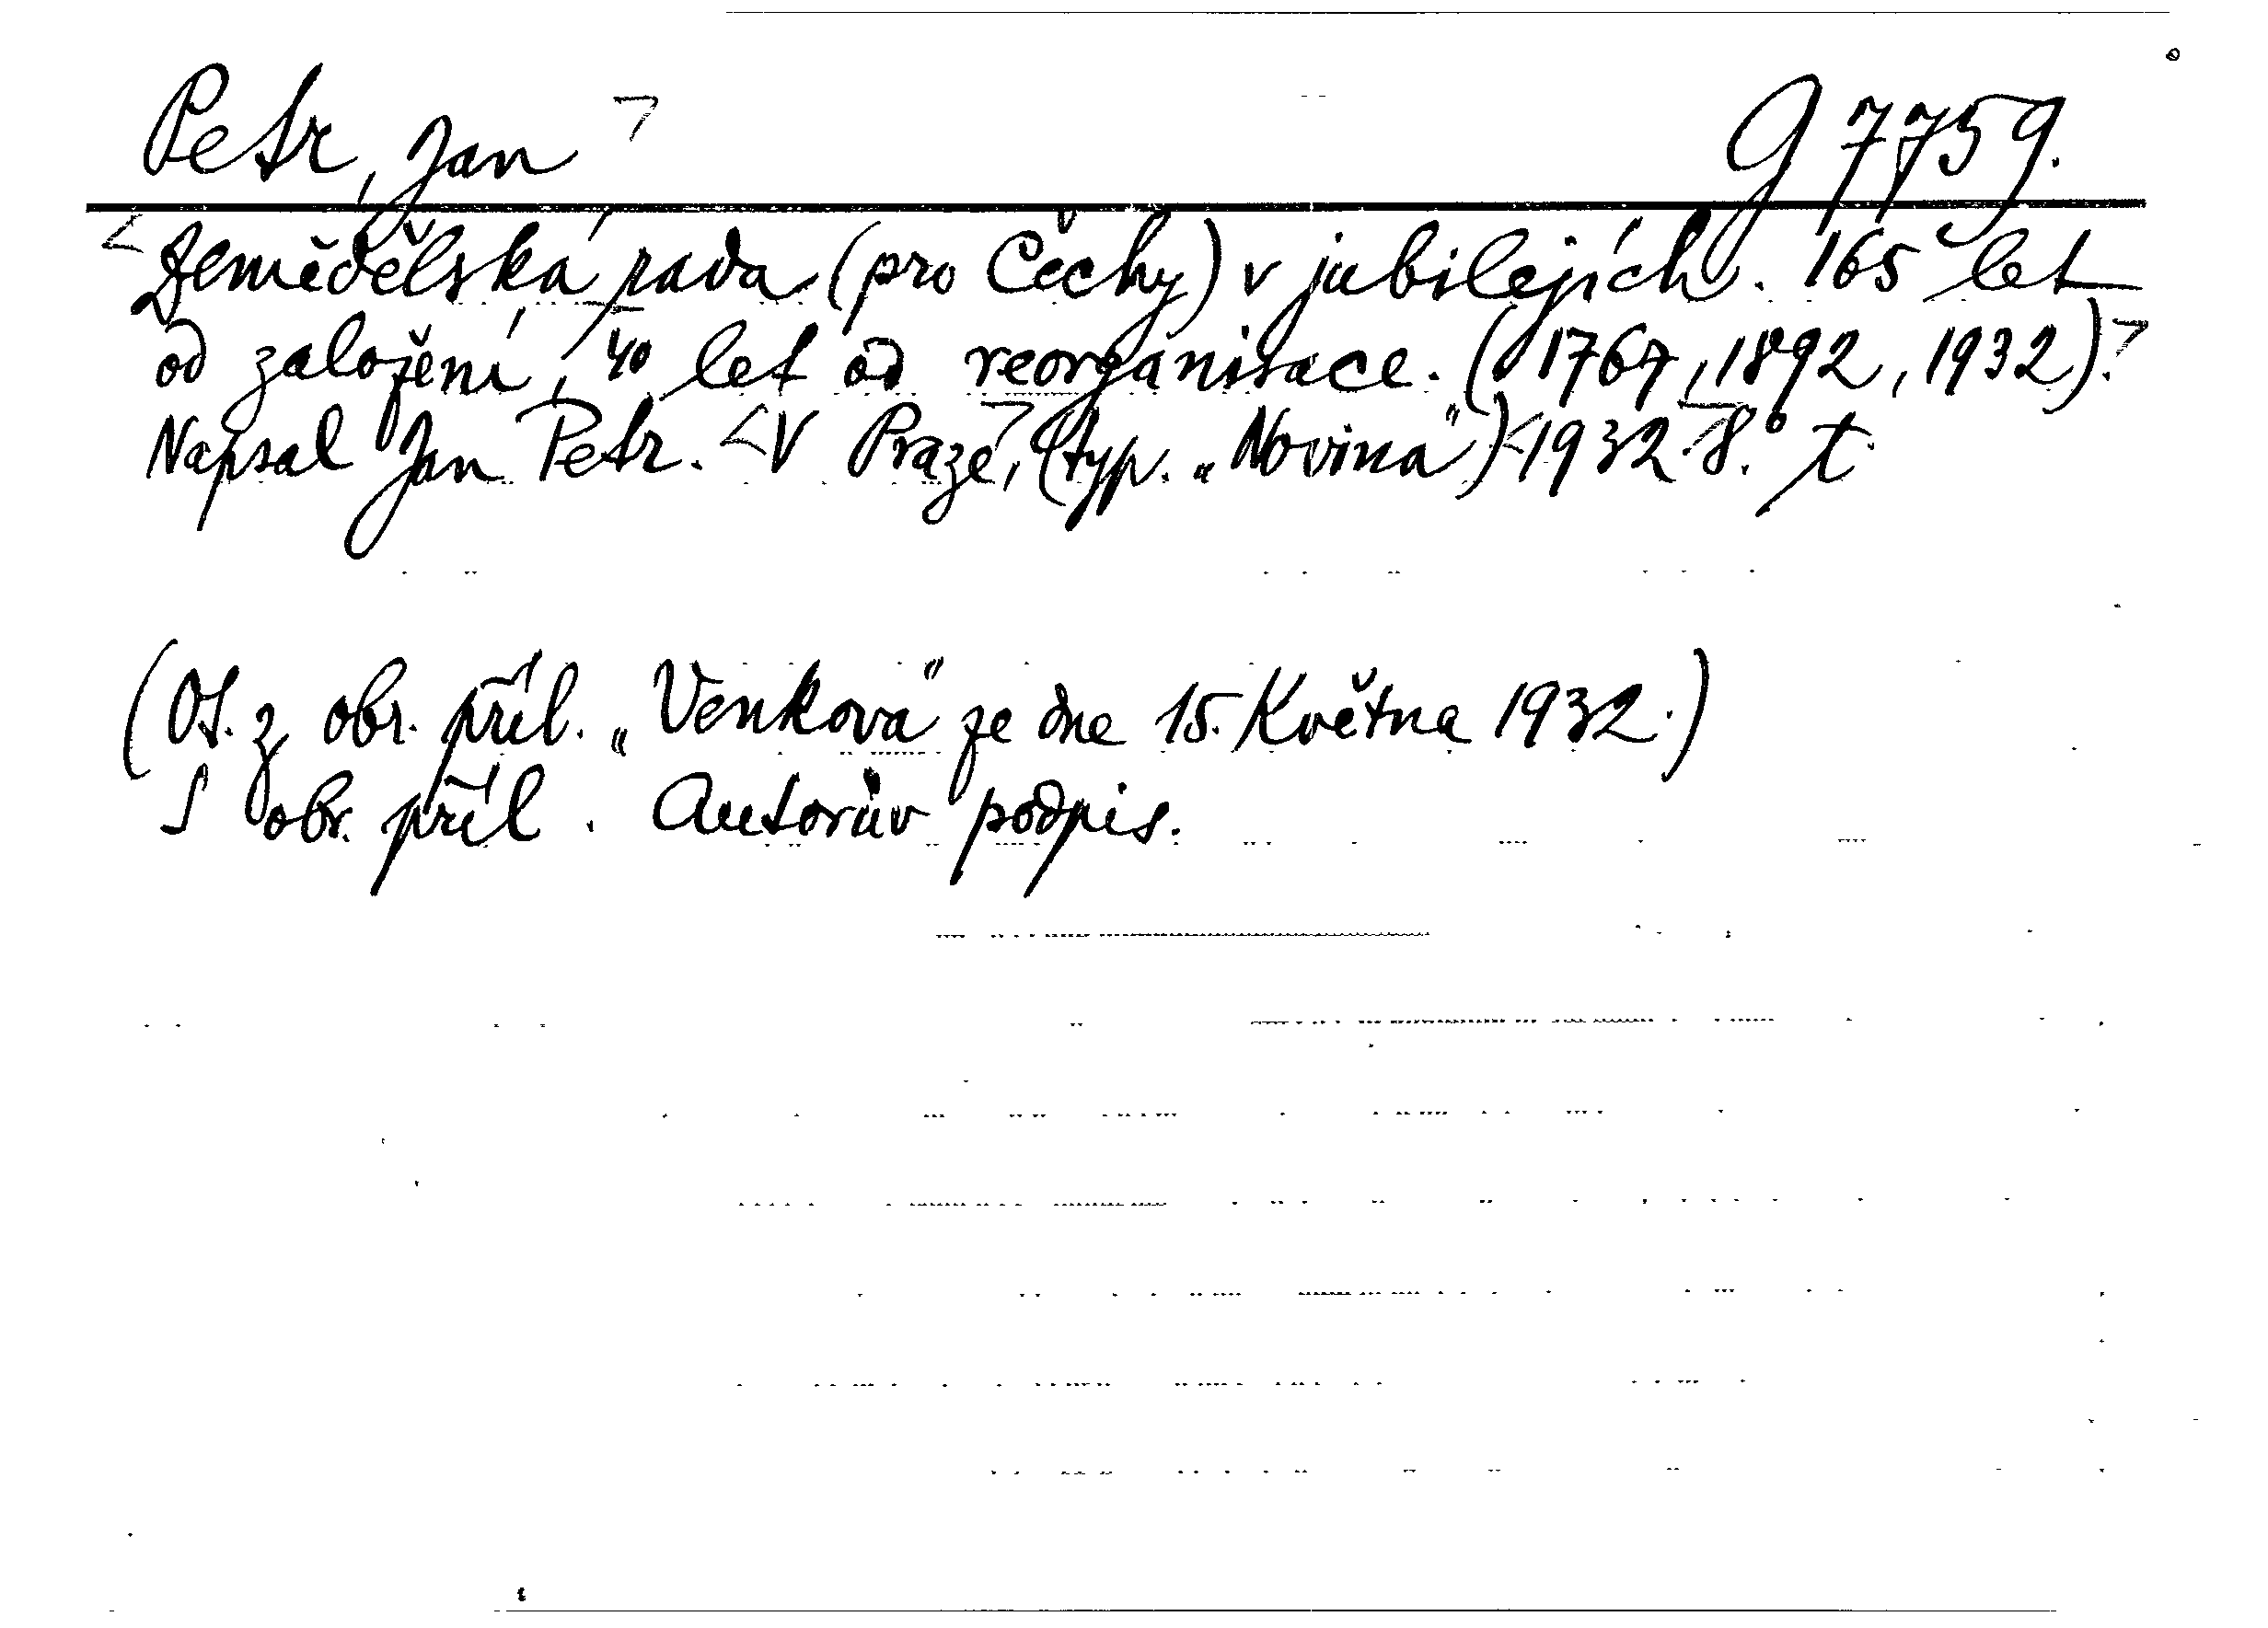 Petr, Jan G 7759.
Zemědělská rada (pro Čechy) v jubilejích. 165 let
od založení, 40 let od reorganisace. (1767, 1892, 1932).
Napsal Jan Petr. V Praze, (typ. „Novina") 1932 8.° t.
(Ot. z obr. příl. „Venkova" ze dne 15. Května 1932.)
S obr. příl. Autorův podpis.